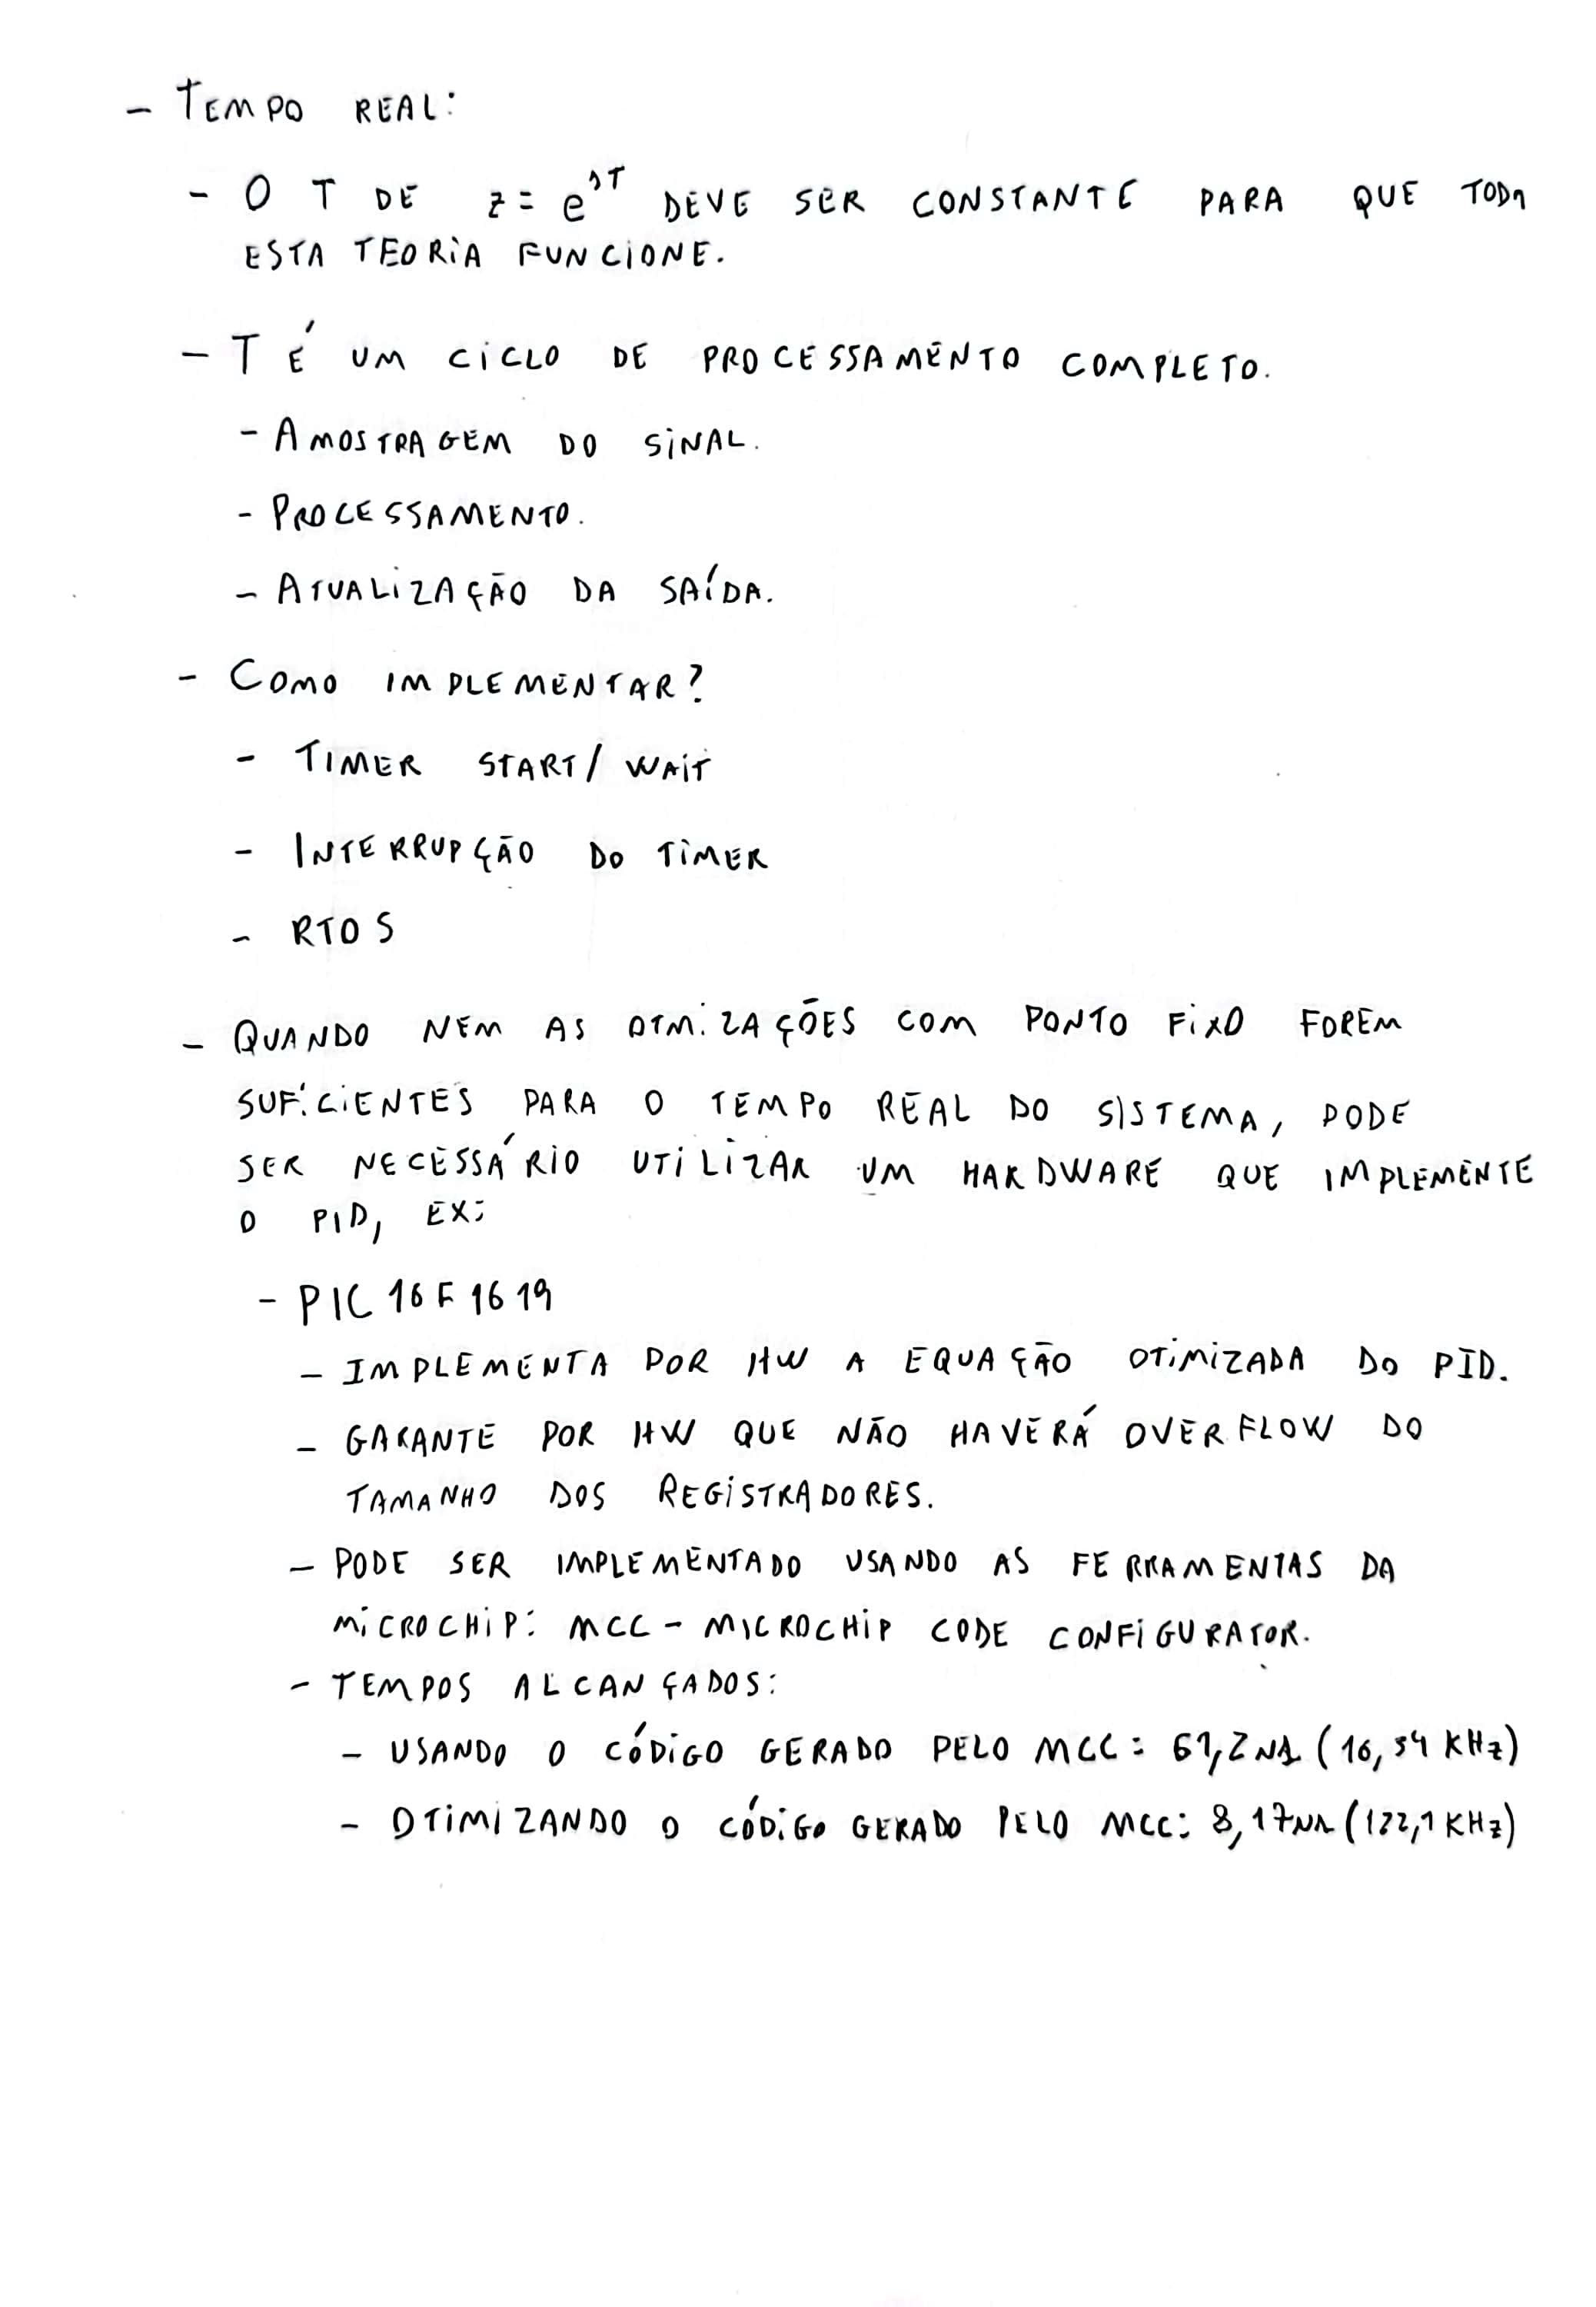 - TEMPO REAL:
- O T DE z = e^sT DEVE SER CONSTANTE PARA QUE TODA
ESTA TEORIA FUNCIONE.
- T É UM CICLO DE PROCESSAMENTO COMPLETO.
- AMOSTRAGEM DO SINAL.
- PROCESSAMENTO.
- ATUALIZAÇÃO DA SAÍDA.
- COMO IMPLEMENTAR?
- TIMER START/WAIT
- INTERRUPÇÃO DO TIMER
- RTOS
- QUANDO NEM AS OTMIZAÇÕES COM PONTO FIXO FOREM
SUFICIENTES PARA O TEMPO REAL DO SISTEMA, PODE
SER NECESSÁRIO UTILIZAR UM HARDWARE QUE IMPLEMENTE
O PID, EX:
- PIC16F1619
- IMPLEMENTA POR HW A EQUAÇÃO OTIMIZADA DO PID.
- GARANTE POR HW QUE NÃO HAVERÁ OVERFLOW DO
TAMANHO DOS REGISTRADORES.
- PODE SER IMPLEMENTADO USANDO AS FERRAMENTAS DA
MICROCHIP: MCC - MICROCHIP CODE CONFIGURATOR.
- TEMPOS ALCANÇADOS:
- USANDO O CÓDIGO GERADO PELO MCC: (16,34 KHz)
- OTIMIZANDO O CÓDIGO GERADO PELO MCC: (122,1 KHz)